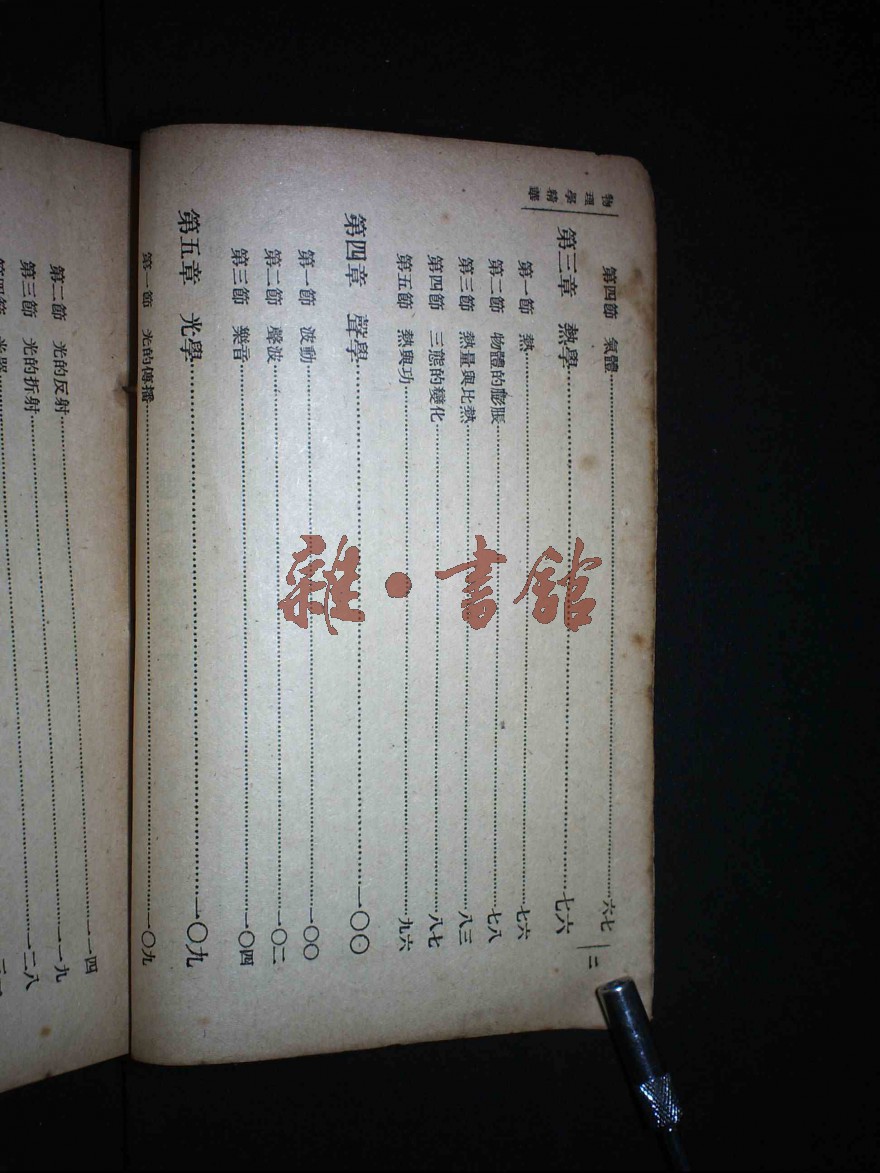 物理學精華
二
第四節 氣體……六七
第三章 熱學……七六
第一節 熱……七六
第二節 物體的膨脹……七八
第三節 熱量與比熱……八三
第四節 三態的變化……八七
第五節 熱與功……九六
第四章 聲學……一〇〇
第一節 波動……一〇〇
第二節 聲波……一〇二
第三節 樂音……一〇四
第五章 光學……一〇九
第一節 光的傳播……一〇九
第二節 光的反射……一一四
第三節 光的折射……一一九
第四節 光器……一二八
雜·書館